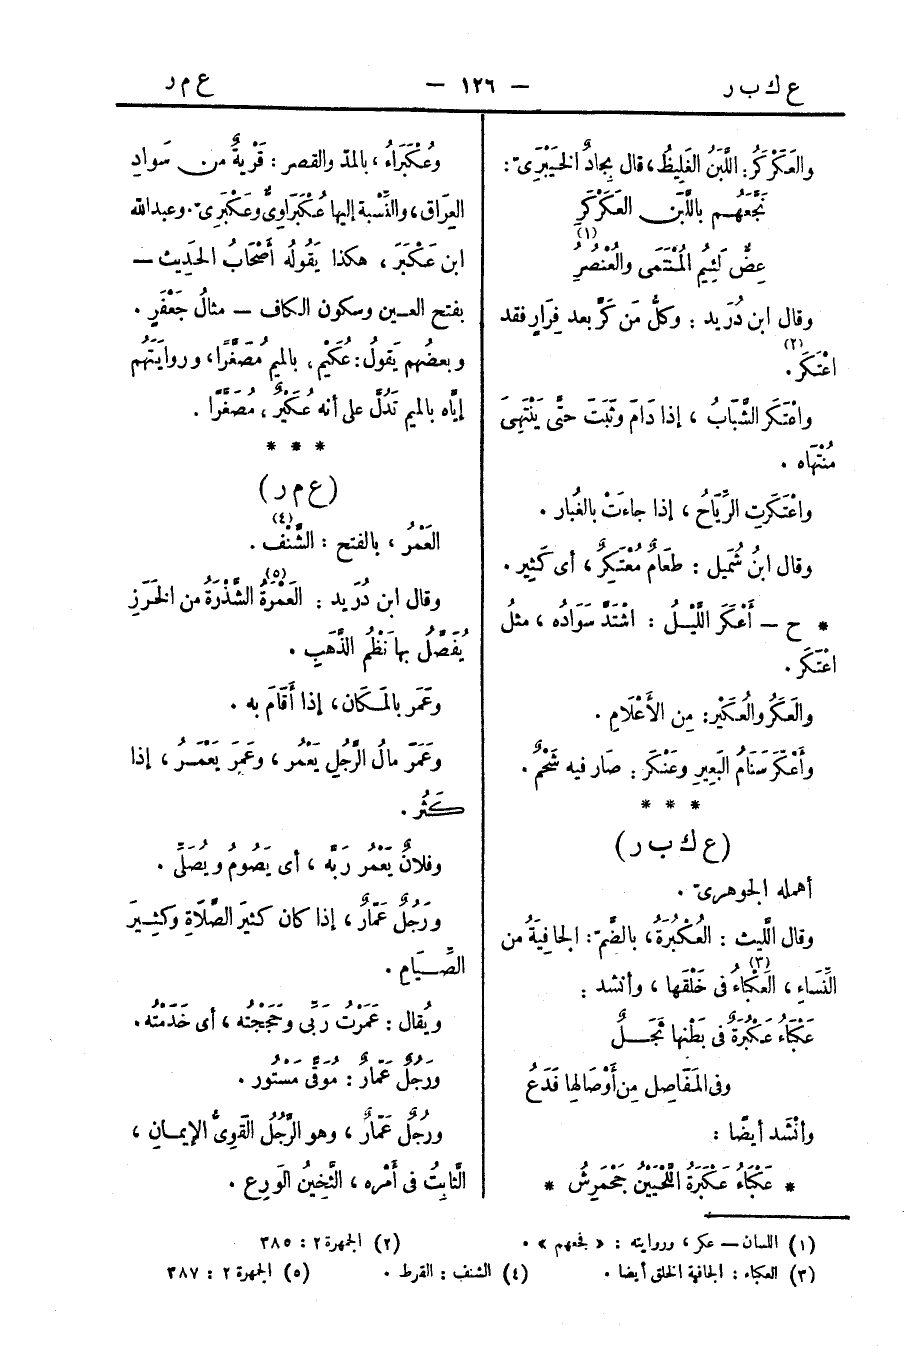 ع ك ب ر
— ١٢٦ —
ع م ر
والعَكَرْكَرُ: اللَّبَنُ الغَلِيظُ، قال بِجادٌ الخَيْبَرِىّ:
نَجَّعَهُم باللَّبَن العَكَرْكَرِ
عِضٌّ لَئِيمُ المُنْتَمَى والعُنْصُرِ (١)
وقال ابن دُرَيد: وكلُّ مَن كَرَّ بعد فِرَارٍ فقد
اعْتَكَر (٢).
واعْتَكَر الشَّبَابُ، إذا دَامَ وثَبَتَ حتَّى يَنْتَهِىَ
مُنْتَهَاه.
واعْتَكَرَتِ الرِّيَاحُ، إذا جاءَتْ بالغُبار.
وقال ابنُ شُمَيل: طَعَامٌ مُعْتَكِرٌ، أى كَثِير.
* ح — أَعْكَر اللَّيْلُ: اشْتَدَّ سَوَادُه، مثلُ
اعْتَكَر.
والعَكَرُ والعُكَيْر: مِن الأَعْلامِ.
وأَعْكَرَ سَنَامُ البَعِيرِ وعَنْكَر: صَار فيه شَحْمٌ.
* * *
(ع ك ب ر)
أهمله الجوهرىّ.
وقال اللَّيث: العُكْبُرَةُ، بالضّمّ: الجافِيَةُ من
النِّسَاءِ، العَكْبَاءُ (٣) فى خَلْقَها، وأنشد:
عَكْبَاءُ عَكْبَرَةٌ فى بَطْنِها ثَجَلٌ
وفى المَفَاصِل مِن أَوْصَالِها فَدَعُ
وأنْشَد أيضًا:
* عَكْبَاءُ عَكْبَرَةُ اللَّحْيَيْن جَحْمَرِشُ *
وعُكْبَرَاءُ، بالمدّ والقصر: قَرْيةٌ من سَوادِ
العِراق، والنِّسْبة إليها عُكْبَرَاوِىٌّ وعُكْبَرِىّ. وعبدالله
ابن عَكْبَر، هكذا يَقُولُه أَصْحَابُ الحَدِيث —
بفتح العين وسكون الكاف — مثالُ جَعْفَرٍ.
وبعضُهم يَقولُ: عُكَيْم، بالميم مُصَغَّرًا، وروايَتُهم
إيَّاه بالميم تَدُلّ على أنه عُكَيْرٌ، مُصَغَّرًا.
* * *
(ع م ر)
العَمْرُ، بالفتح: الشَّنْف (٤).
وقال ابن دُرَيد: العَمْرَةُ (٥) الشَّذْرَةُ من الخَرَزِ
يُفَصَّلُ بها نَظْمُ الذَّهَبِ.
وعَمَر بالمَكَان، إذا أقَامَ به.
وعَمَرَ مالُ الرَّجُلِ يَعْمُر، وعَمِرَ يَعْمَرُ، إذا
كَثُر.
وفلانٌ يَعْمُر رَبَّه، أى يَصُومُ ويُصَلِّى.
ورَجُلٌ عَمَّارٌ، إذا كان كثيرَ الصَّلَاةِ وكَثِيرَ
الصِّيَامِ.
ويُقال: عَمَرْتُ رَبِّى وحَجَجْتُه، أى خَدَمْتُه.
ورَجُلٌ عَمّارٌ: مُوَقًّى مَسْتُور.
ورجُلٌ عَمّارٌ، وهو الرَّجُلُ القَوِىُّ الإيمانِ،
الثَّابِتُ فى أَمْرِه، الثَّخِينُ الوَرِع.
(١) اللسان — عكر، وروايته: «فجعهم».
(٢) الجمهرة ٢: ٣٨٥
(٣) العكباء: الجافية الخلق أيضا.
(٤) الشنف: القرط.
(٥) الجمهرة ٢: ٣٨٧